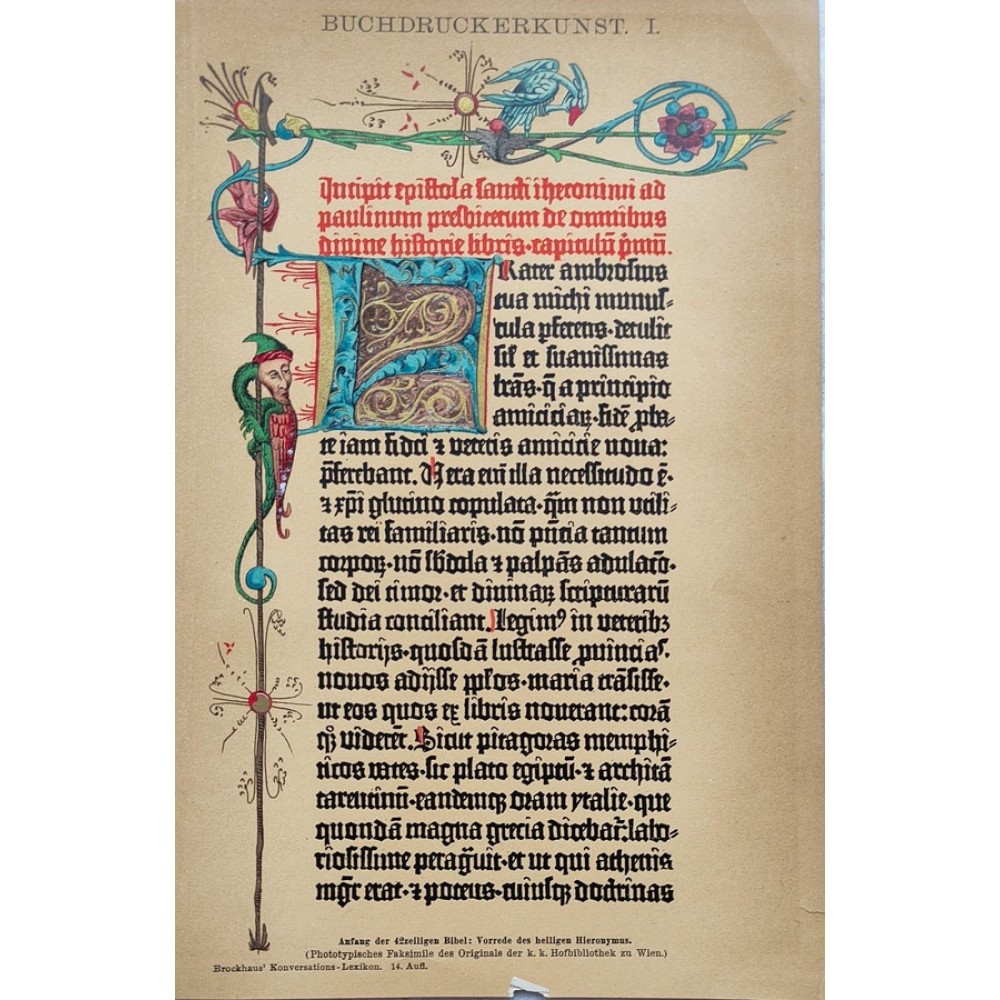 BUCHDRUCKERKUNST. I.
Incipit epistola sancti iheronimi ad
paulinum presbiterum de omnibus
divine historie libris·capitulū pͥmū.
Frater ambrosius
tua michi munus-
cula ꝑferens·detulit
siĺ et suavissimas
lr̄as·q̄ a principio
amiciciaꝝ·fidē ꝓba-
te iam fidei ⁊ veteris amicicie nova:
p̄ferebant. Vera em̄ illa necessitudo ē·
⁊ xp̄i glutino copulata·q̄m non utili-
tas rei familiaris·nō p̄ntia tantum
corpoꝝ·nō s̄bdola ⁊ palpās adulaco͞·
sed dei timor·et divinaꝝ scripturarū
studia conciliant. Legimꝰ in veteribꝫ
historijs·quosdā lustrasse ꝓvincias·
novos adijsse pp̄los·maria trāsisse·
ut eos quos ex libris noverant: corā
qꝫ viderēt. Sicut pitagoras memphi-
ticos vates·sic plato egiptū·⁊ architā
tarentinū·eandemqꝫ oram ytalie·que
quondā magna grecia dicebat̄: labo-
riosissime peragᷓvit·et ut qui athenis
mgr̄ erat·⁊ potens·cuiusqꝫ doctrinas
Anfang der 42zeiligen Bibel: Vorrede des heiligen Hieronymus.
(Phototypisches Faksimile des Originals der k. k. Hofbibliothek zu Wien.)
Brockhaus' Konversations-Lexikon. 14. Aufl.